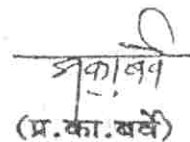 प्र.का.बर्वे
(प्र.का.बर्वे)